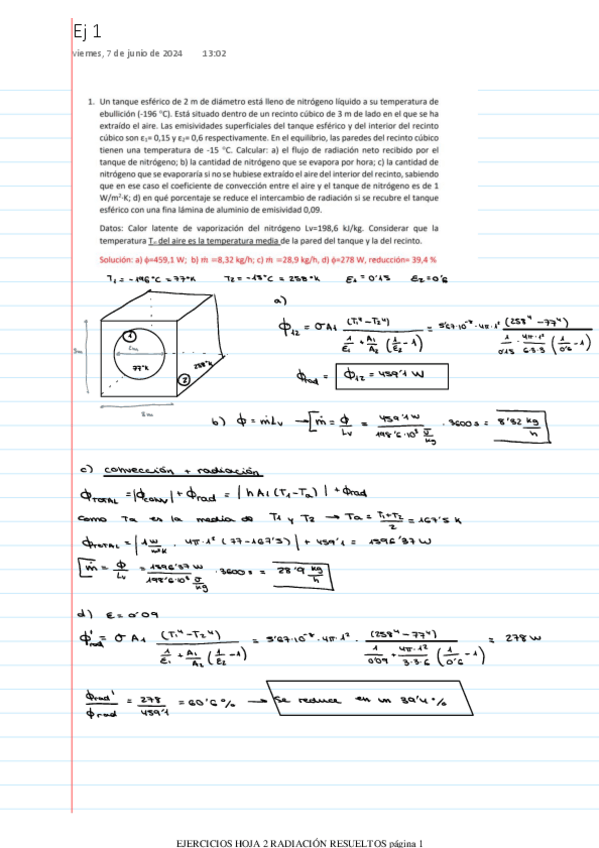 Ej 1
viernes, 7 de junio de 2024 13:02
1. Un tanque esférico de 2 m de diámetro está lleno de nitrógeno líquido a su temperatura de
ebullición (-196 °C). Está situado dentro de un recinto cúbico de 3 m de lado en el que se ha
extraído el aire. Las emisividades superficiales del tanque esférico y del interior del recinto
cúbico son ε₁= 0,15 y ε₂= 0,6 respectivamente. En el equilibrio, las paredes del recinto cúbico
tienen una temperatura de -15 °C. Calcular: a) el flujo de radiación neto recibido por el
tanque de nitrógeno; b) la cantidad de nitrógeno que se evapora por hora; c) la cantidad de
nitrógeno que se evaporaría si no se hubiese extraído el aire del interior del recinto, sabiendo
que en ese caso el coeficiente de convección entre el aire y el tanque de nitrógeno es de 1
W/m²·K; d) en qué porcentaje se reduce el intercambio de radiación si se recubre el tanque
esférico con una fina lámina de aluminio de emisividad 0,09.
Datos: Calor latente de vaporización del nitrógeno Lv=198,6 kJ/kg. Considerar que la
temperatura Tₐ del aire es la temperatura media de la pared del tanque y la del recinto.
Solución: a) ϕ=459,1 W; b) ṁ =8,32 kg/h; c) ṁ =28,9 kg/h, d) ϕ=278 W, reducción= 39,4 %
T₁ = -196°C = 77°K T₂ = -15°C = 258°K ε₁ = 0'15 ε₂ = 0'6
a)
ϕ₁₂ = σ A₁ (T₁⁴-T₂⁴) / (1/ε₁ + A₁/A₂ (1/ε₂ -1)) = 5'67·10⁻⁸·4π·1² (258⁴-77⁴) / (1/0'15 · 4π·1²/6·3·3 (1/0'6 -1))
1
2m
77°K
258°K
2
3m
3m
ϕrad = ϕ₁₂ = 459'1 W
b) ϕ = ṁLv → ṁ = ϕ/Lv = 459'1 W / 198'6·10³ J/kg · 3600 s = 8'32 kg/h
c) convección + radiación
ϕTOTAL = |ϕconv| + ϕrad = |h A₁ (T₁-Ta)| + ϕrad
Como Ta es la media de T₁ y T₂ → Ta = T₁+T₂/2 = 167'5 K
ϕTOTAL = |1 W/m²K · 4π·1² (77-167'5)| + 459'1 = 1596'37 W
ṁ = ϕ/Lv = 1596'37 W / 198'6·10³ J/kg · 3600 s = 28'9 kg/h
d) ε = 0'09
ϕ'rad = σ A₁ (T₁⁴-T₂⁴) / (1/ε₁ + A₁/A₂ (1/ε₂ -1)) = 5'67·10⁻⁸·4π·1² · (258⁴-77⁴) / (1/0'09 + 4π·1²/3·3·6 (1/0'6 -1)) = 278 W
ϕrad'/ϕrad = 278/459'1 = 60'6 % → Se reduce en un 39'4 %
EJERCICIOS HOJA 2 RADIACIÓN RESUELTOS página 1